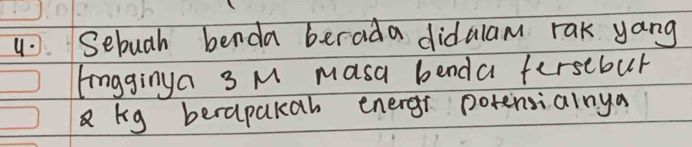 4. Sebuah benda berada didalam rak yang
tingginya 3 M Masa benda tersebut
2 kg berapakah energi potensialnya